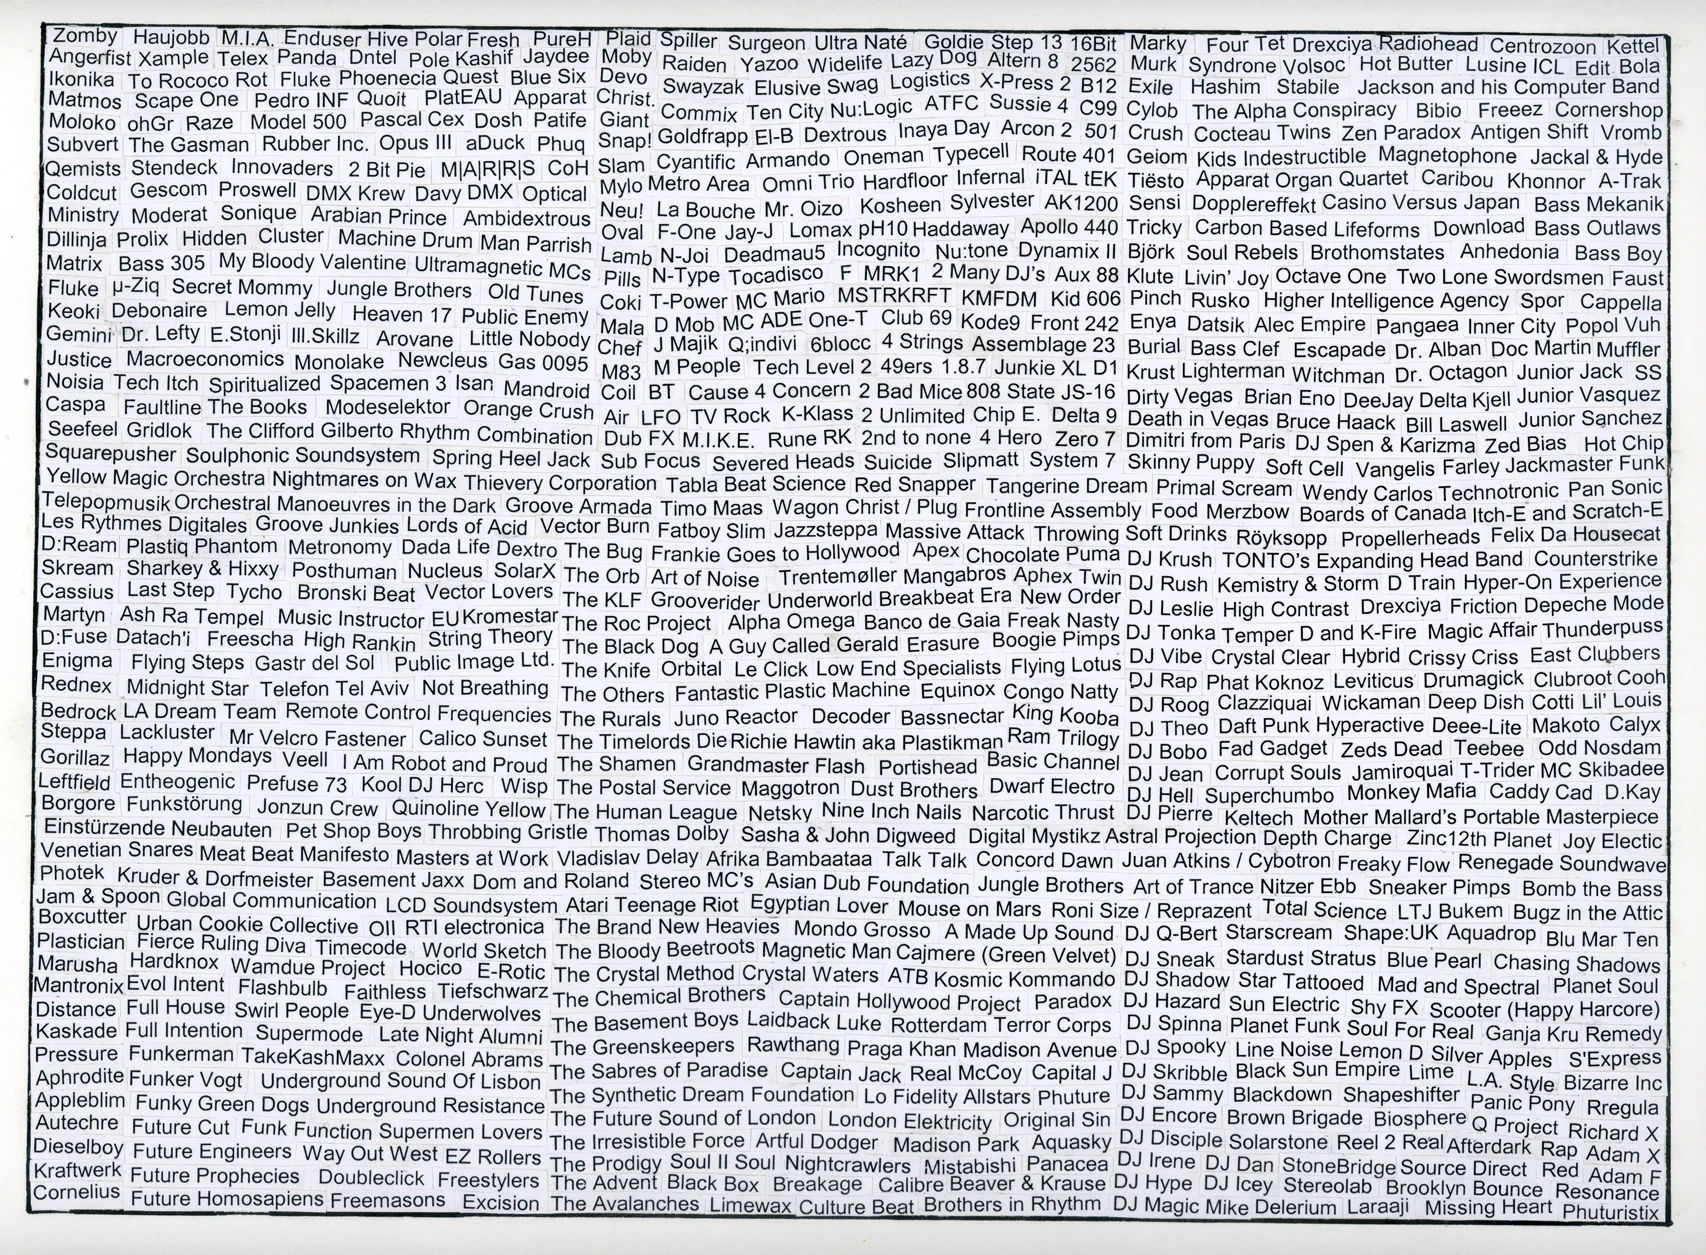 Zomby Haujobb M.I.A. Enduser Hive Polar Fresh PureH Plaid Spiller Surgeon Ultra Naté Goldie Step 13 16Bit Marky Four Tet Drexciya Radiohead Centrozoon Kettel
Angerfist Xample Telex Panda Dntel Pole Kashif Jaydee Moby Raiden Yazoo Widelife Lazy Dog Altern 8 2562 Murk Syndrone Volsoc Hot Butter Lusine ICL Edit Bola
Ikonika To Rococo Rot Fluke Phoenecia Quest Blue Six Devo Swayzak Elusive Swag Logistics X-Press 2 B12 Exile Hashim Stabile Jackson and his Computer Band
Matmos Scape One Pedro INF Quoit PlatEAU Apparat Christ. Commix Ten City Nu:Logic ATFC Sussie 4 C99 Cylob The Alpha Conspiracy Bibio Freeez Cornershop
Moloko ohGr Raze Model 500 Pascal Cex Dosh Patife Giant Goldfrapp El-B Dextrous Inaya Day Arcon 2 501 Crush Cocteau Twins Zen Paradox Antigen Shift Vromb
Subvert The Gasman Rubber Inc. Opus III aDuck Phuq Snap! Cyantific Armando Oneman Typecell Route 401 Geiom Kids Indestructible Magnetophone Jackal & Hyde
Qemists Stendeck Innovaders 2 Bit Pie M|A|R|R|S CoH Slam Metro Area Omni Trio Hardfloor Infernal iTAL tEK Tiësto Apparat Organ Quartet Caribou Khonnor A-Trak
Coldcut Gescom Proswell DMX Krew Davy DMX Optical Mylo La Bouche Mr. Oizo Kosheen Sylvester AK1200 Sensi Dopplereffekt Casino Versus Japan Bass Mekanik
Ministry Moderat Sonique Arabian Prince Ambidextrous Neu! F-One Jay-J Lomax pH10 Haddaway Apollo 440 Tricky Carbon Based Lifeforms Download Bass Outlaws
Dillinja Prolix Hidden Cluster Machine Drum Man Parrish Oval N-Joi Deadmau5 Incognito Nu:tone Dynamix II Björk Soul Rebels Brothomstates Anhedonia Bass Boy
Matrix Bass 305 My Bloody Valentine Ultramagnetic MCs Lamb N-Type Tocadisco F MRK1 2 Many DJ's Aux 88 Klute Livin' Joy Octave One Two Lone Swordsmen Faust
Fluke µ-Ziq Secret Mommy Jungle Brothers Old Tunes Pills T-Power MC Mario MSTRKRFT KMFDM Kid 606 Pinch Rusko Higher Intelligence Agency Spor Cappella
Keoki Debonaire Lemon Jelly Heaven 17 Public Enemy Coki D Mob MC ADE One-T Club 69 Kode9 Front 242 Enya Datsik Alec Empire Pangaea Inner City Popol Vuh
Gemini Dr. Lefty E.Stonji Ill.Skillz Arovane Little Nobody Mala J Majik Q;indivi 6blocc 4 Strings Assemblage 23 Burial Bass Clef Escapade Dr. Alban Doc Martin Muffler
Justice Macroeconomics Monolake Newcleus Gas 0095 Chef M People Tech Level 2 49ers 1.8.7 Junkie XL D1 Krust Lighterman Witchman Dr. Octagon Junior Jack SS
Noisia Tech Itch Spiritualized Spacemen 3 Isan Mandroid M83 BT Cause 4 Concern 2 Bad Mice 808 State JS-16 Dirty Vegas Brian Eno DeeJay Delta Kjell Junior Vasquez
Caspa Faultline The Books Modeselektor Orange Crush Coil Air LFO TV Rock K-Klass 2 Unlimited Chip E. Delta 9 Death in Vegas Bruce Haack Bill Laswell Junior Sanchez
Seefeel Gridlok The Clifford Gilberto Rhythm Combination Dub FX M.I.K.E. Rune RK 2nd to none 4 Hero Zero 7 Dimitri from Paris DJ Spen & Karizma Zed Bias Hot Chip
Squarepusher Soulphonic Soundsystem Spring Heel Jack Sub Focus Severed Heads Suicide Slipmatt System 7 Skinny Puppy Soft Cell Vangelis Farley Jackmaster Funk
Yellow Magic Orchestra Nightmares on Wax Thievery Corporation Tabla Beat Science Red Snapper Tangerine Dream Primal Scream Wendy Carlos Technotronic Pan Sonic
Telepopmusik Orchestral Manoeuvres in the Dark Groove Armada Timo Maas Wagon Christ / Plug Frontline Assembly Food Merzbow Boards of Canada Itch-E and Scratch-E
Les Rythmes Digitales Groove Junkies Lords of Acid Vector Burn Fatboy Slim Jazzsteppa Massive Attack Throwing Soft Drinks Röyksopp Propellerheads Felix Da Housecat
D:Ream Plastiq Phantom Metronomy Dada Life Dextro The Bug Frankie Goes to Hollywood Apex Chocolate Puma DJ Krush TONTO's Expanding Head Band Counterstrike
Skream Sharkey & Hixxy Posthuman Nucleus SolarX The Orb Art of Noise Trentemøller Mangabros Aphex Twin DJ Rush Kemistry & Storm D Train Hyper-On Experience
Cassius Last Step Tycho Bronski Beat Vector Lovers The KLF Grooverider Underworld Breakbeat Era New Order DJ Leslie High Contrast Drexciya Friction Depeche Mode
Martyn Ash Ra Tempel Music Instructor EU Kromestar The Roc Project Alpha Omega Banco de Gaia Freak Nasty DJ Tonka Temper D and K-Fire Magic Affair Thunderpuss
D:Fuse Datach'i Freescha High Rankin String Theory The Black Dog A Guy Called Gerald Erasure Boogie Pimps DJ Vibe Crystal Clear Hybrid Crissy Criss East Clubbers
Enigma Flying Steps Gastr del Sol Public Image Ltd. The Knife Orbital Le Click Low End Specialists Flying Lotus DJ Rap Phat Koknoz Leviticus Drumagick Clubroot Cooh
Rednex Midnight Star Telefon Tel Aviv Not Breathing The Others Fantastic Plastic Machine Equinox Congo Natty DJ Roog Clazziquai Wickaman Deep Dish Cotti Lil' Louis
Bedrock LA Dream Team Remote Control Frequencies The Rurals Juno Reactor Decoder Bassnectar King Kooba DJ Theo Daft Punk Hyperactive Deee-Lite Makoto Calyx
Steppa Lackluster Mr Velcro Fastener Calico Sunset The Timelords Die Richie Hawtin aka Plastikman Ram Trilogy DJ Bobo Fad Gadget Zeds Dead Teebee Odd Nosdam
Gorillaz Happy Mondays Veell I Am Robot and Proud The Shamen Grandmaster Flash Portishead Basic Channel DJ Jean Corrupt Souls Jamiroquai T-Trider MC Skibadee
Leftfield Entheogenic Prefuse 73 Kool DJ Herc Wisp The Postal Service Maggotron Dust Brothers Dwarf Electro DJ Hell Superchumbo Monkey Mafia Caddy Cad D.Kay
Borgore Funkstörung Jonzun Crew Quinoline Yellow The Human League Netsky Nine Inch Nails Narcotic Thrust DJ Pierre Keltech Mother Mallard's Portable Masterpiece
Einstürzende Neubauten Pet Shop Boys Throbbing Gristle Thomas Dolby Sasha & John Digweed Digital Mystikz Astral Projection Depth Charge Zinc 12th Planet Joy Electic
Venetian Snares Meat Beat Manifesto Masters at Work Vladislav Delay Afrika Bambaataa Talk Talk Concord Dawn Juan Atkins / Cybotron Freaky Flow Renegade Soundwave
Photek Kruder & Dorfmeister Basement Jaxx Dom and Roland Stereo MC's Asian Dub Foundation Jungle Brothers Art of Trance Nitzer Ebb Sneaker Pimps Bomb the Bass
Jam & Spoon Global Communication LCD Soundsystem Atari Teenage Riot Egyptian Lover Mouse on Mars Roni Size / Reprazent Total Science LTJ Bukem Bugz in the Attic
Boxcutter Urban Cookie Collective OII RTI electronica The Brand New Heavies Mondo Grosso A Made Up Sound DJ Q-Bert Starscream Shape:UK Aquadrop Blu Mar Ten
Plastician Fierce Ruling Diva Timecode World Sketch The Bloody Beetroots Magnetic Man Cajmere (Green Velvet) DJ Sneak Stardust Stratus Blue Pearl Chasing Shadows
Marusha Hardknox Wamdue Project Hocico E-Rotic The Crystal Method Crystal Waters ATB Kosmic Kommando DJ Shadow Star Tattooed Mad and Spectral Planet Soul
Mantronix Evol Intent Flashbulb Faithless Tiefschwarz The Chemical Brothers Captain Hollywood Project Paradox DJ Hazard Sun Electric Shy FX Scooter (Happy Harcore)
Distance Full House Swirl People Eye-D Underwolves The Basement Boys Laidback Luke Rotterdam Terror Corps DJ Spinna Planet Funk Soul For Real Ganja Kru Remedy
Kaskade Full Intention Supermode Late Night Alumni The Greenskeepers Rawthang Praga Khan Madison Avenue DJ Spooky Line Noise Lemon D Silver Apples S'Express
Pressure Funkerman TakeKashMaxx Colonel Abrams The Sabres of Paradise Captain Jack Real McCoy Capital J DJ Skribble Black Sun Empire Lime L.A. Style Bizarre Inc
Aphrodite Funker Vogt Underground Sound Of Lisbon The Synthetic Dream Foundation Lo Fidelity Allstars Phuture DJ Sammy Blackdown Shapeshifter Panic Pony Rregula
Appleblim Funky Green Dogs Underground Resistance The Future Sound of London London Elektricity Original Sin DJ Encore Brown Brigade Biosphere Q Project Richard X
Autechre Future Cut Funk Function Supermen Lovers The Irresistible Force Artful Dodger Madison Park Aquasky DJ Disciple Solarstone Reel 2 Real Afterdark Rap Adam X
Dieselboy Future Engineers Way Out West EZ Rollers The Prodigy Soul II Soul Nightcrawlers Mistabishi Panacea DJ Irene DJ Dan StoneBridge Source Direct Red Adam F
Kraftwerk Future Prophecies Doubleclick Freestylers The Advent Black Box Breakage Calibre Beaver & Krause DJ Hype DJ Icey Stereolab Brooklyn Bounce Resonance
Cornelius Future Homosapiens Freemasons Excision The Avalanches Limewax Culture Beat Brothers in Rhythm DJ Magic Mike Delerium Laraaji Missing Heart Phuturistix